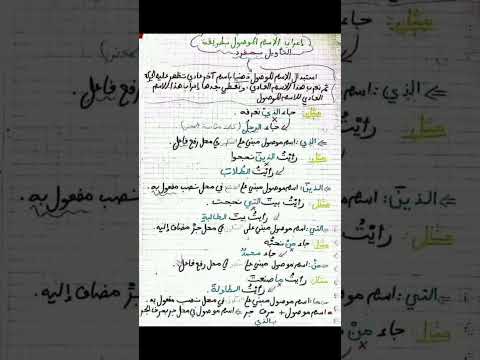 إعراب الاسم الموصول بطريقة
التأويل بمفرد
استبدال الاسم الموصول ذهنيا باسم آخر عادي تظهر عليه الحركة
ثم نعرب هذا الاسم العادي، ونعطي بعدها إعراب هذا الاسم
العادي للاسم الموصول
مثال: جاء الذي نعرفه.
جاء الرجلُ
الذي: اسم موصول مبني على في محل رفع فاعل.
مثال: رأيتُ الذين نجحوا
رأيتُ الطلابَ
الذين: اسم موصول مبني على في محل نصب مفعول به.
مثال: رأيتُ بيتَ التي نجحت.
رأيتُ بيتَ الطالبةِ
التي: اسم موصول مبني على في محل جرّ مضاف إليه.
مثال جاء مَنْ نحبّه
جاء محمدٌ
مَنْ: اسم موصول مبني على في محل رفع فاعل.
مثال رأيتُ ما صنعت
رأيتُ الطاولةَ
ما: اسم موصول مبني على في محل نصب مفعول به.
اسم موصول + حرف جر = اسم موصول في محل جر بحرف الجر
بالذي